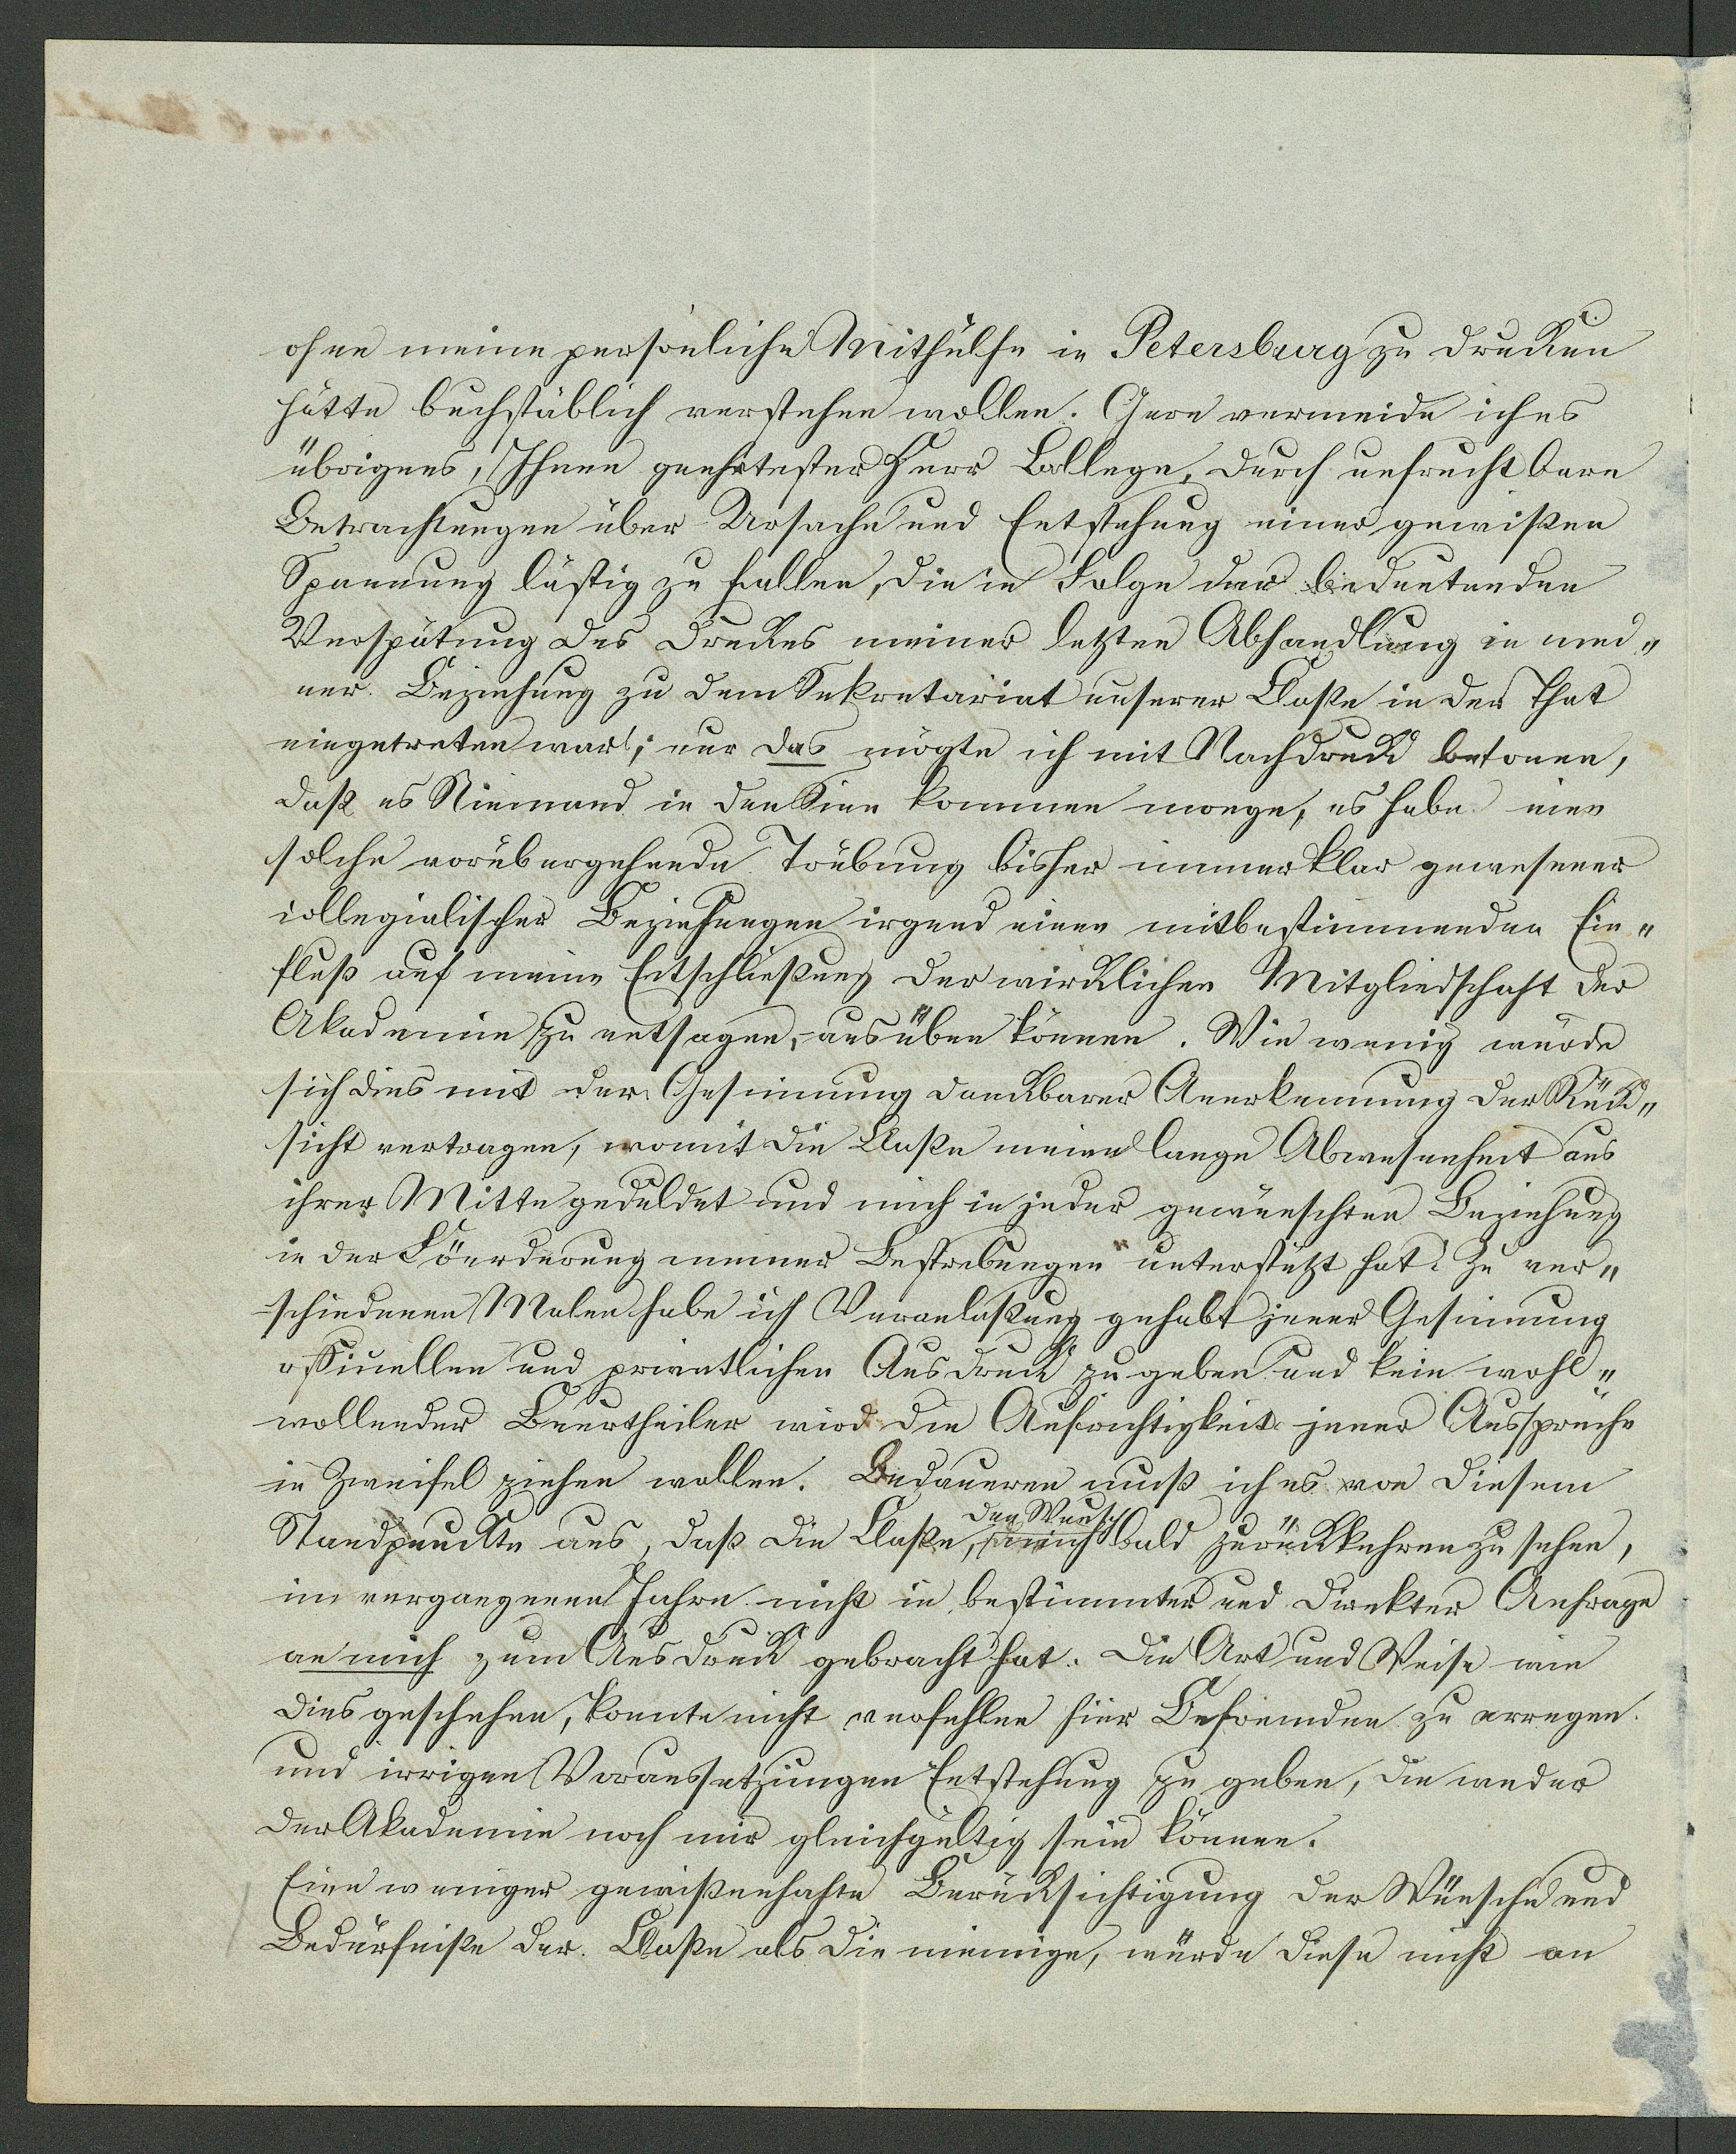 ohne meine persönliche Mithülfe in Petersburg zu drucken
hätte buchstäblich verstehen wollen. Gern vermeide ich es
übrigens, Ihnen geehrtester Herr College, durch unfruchtbare
Betrachtungen über Ursache und Entstehung einer gewißen
Spannung lästig zu fallen, die in Folge der bedeutenden
Verspätung des Druckes meiner letzten Abhandlung in mei„
ner Beziehung zu dem Sekretariat unserer Claße in der That
eingetreten war; nur das mögte ich mit Nachdruck betonen,
daß es Niemand in den Sinn kommen moege, es habe eine
solche vorübergehende Trübung bisher immer klar gewesener
collegialischer Beziehungen irgend einen mitbestimmenden Ein„
fluß auf meine Entschließung der wircklichen Mitgliedschaft der
Akademie zu entsagen, ausüben können. Wie wenig würde
sich dies mit der Gesinnung danckbarer Anerkennung der Rück„
sicht vertragen, womit die Claße meine lange Abwesenheit aus
ihrer Mitte geduldet und mich in jeder gewünschten Beziehung
in der Föerderung meiner Bestrebungen unterstützt hat. Zu ver„
schiedenen Malen habe ich Veranlaßung gehabt jener Gesinnung
officiellen und privatlichen Ausdruck zu geben und kein wohl„
wollender Beurtheiler wird die Aufrichtigkeit jener Aussprüche
in Zweifel ziehen wollen. Bedaueren muß ich es von diesem
Standpunckte aus, daß die Claße, den Wunsch mich bald zurückkehren zu sehen,
im vergangenen Jahre nicht in bestimmter und direkter Anfrage
an mich zum Ausdruck gebracht hat. Die Art und Weise wie
dies geschehen, konnte nicht verfehlen hier Befremden zu erregen
und irrigen Voraussetzungen Entstehung zu geben, die weder
der Akademie noch mir gleichgültig sein können.
Eine weniger gewißenhafte Berücksichtigung der Wünsche und
Bedürfniße der Claße als die meinige, würde diese nicht an